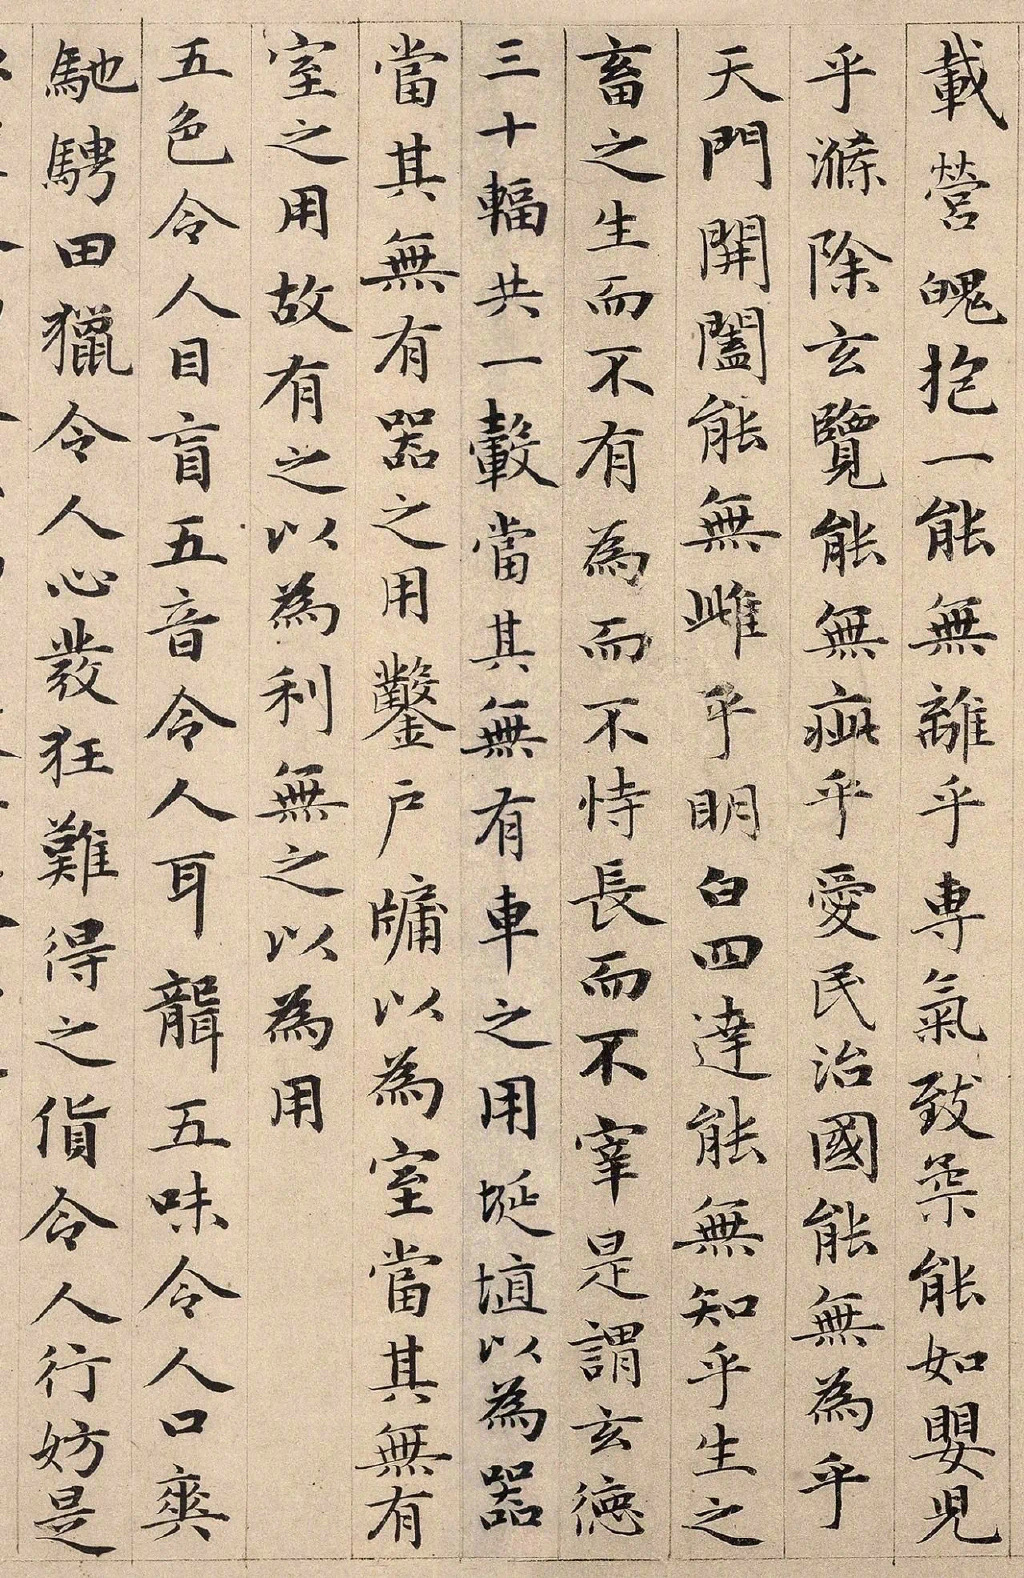 載營魄抱一能無離乎專氣致柔能如嬰兒
乎滌除玄覽能無疵乎愛民治國能無為乎
天門開闔能無雌乎明白四達能無知乎生之
畜之生而不有為而不恃長而不宰是謂玄德
三十輻共一轂當其無有車之用埏埴以為器
當其無有器之用鑿戶牖以為室當其無有
室之用故有之以為利無之以為用
五色令人目盲五音令人耳聾五味令人口爽
馳騁田獵令人心發狂難得之貨令人行妨是